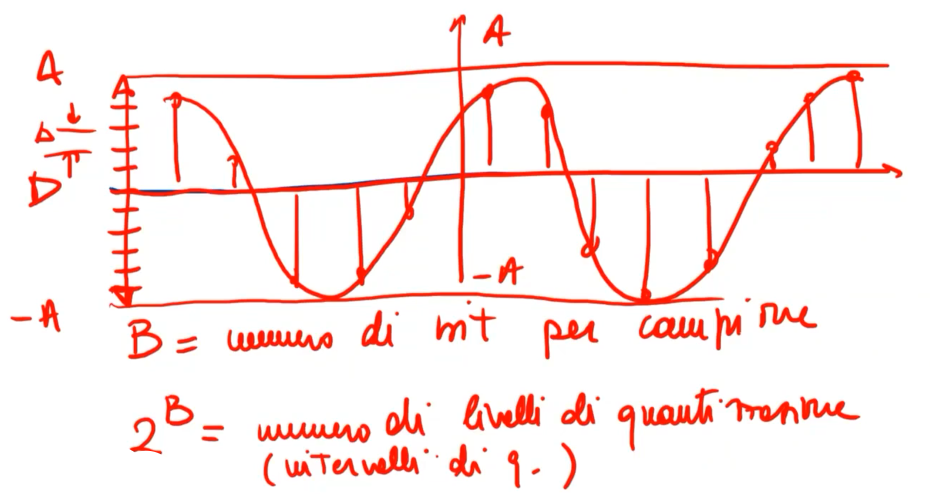 A
A
Δ
D
-A
-A
B = numero di bit per campione
2^B = numero di livelli di quantizzazione
(intervalli di q.)